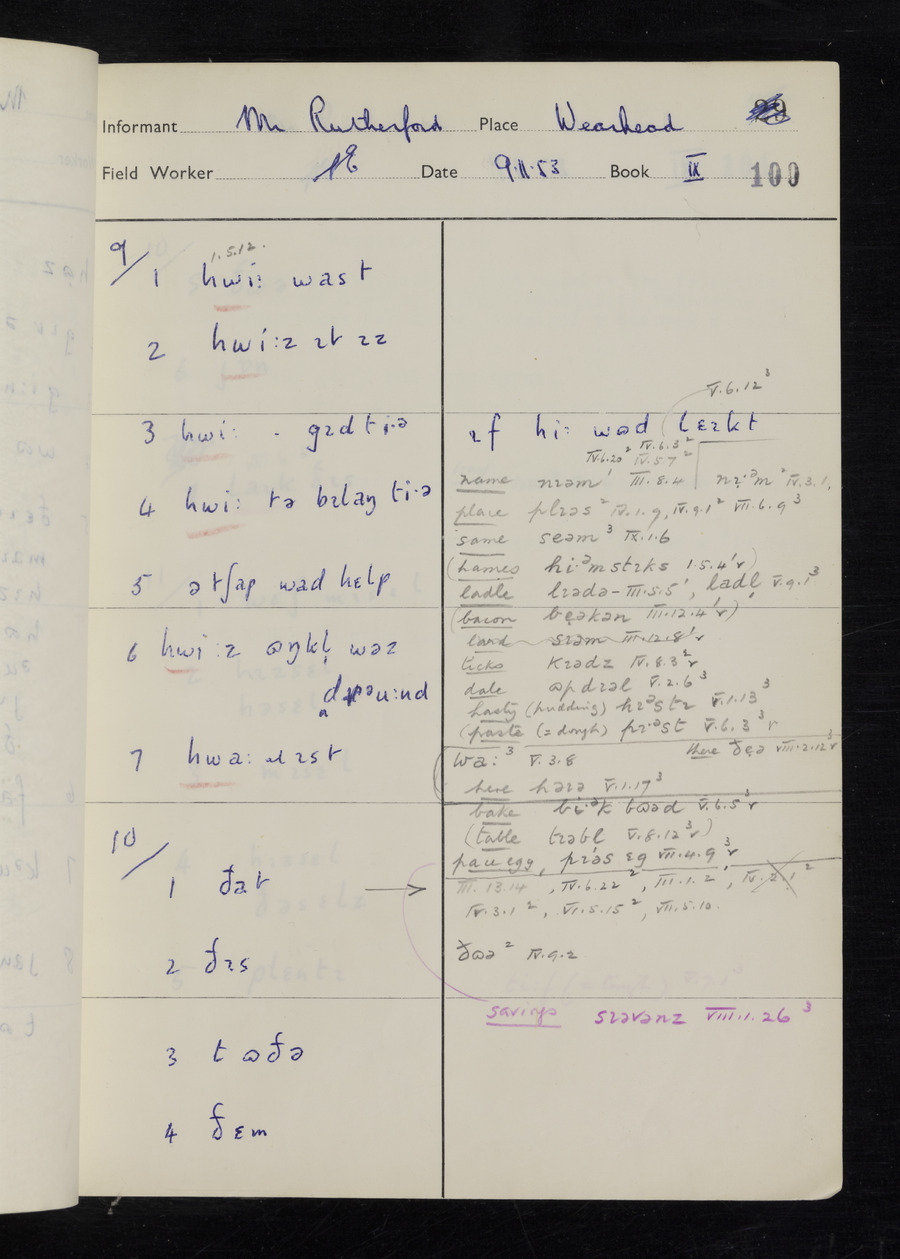 Informant Mr Rutherford Place Wearhead
Field Worker Date 9.11.53 Book IX 100
9/ 1.5.12.
1 hwi: wast
2 hwi:z ɪt ɪz
3 hwi: - gɪd ti·ə
ɪf hi: wəd lɛɪkt V.6.12³
4 hwi: tə bɪlaŋ ti·ə
5 ətʃap wad hɛlp
6 hwi:z ɷŋkl̩ wəz
dɹəu:nd
7 hwa: ɪst
10/
1 ðat →
2 ðɪs
3 tɷðə
4 ðɛm
IV.6.20² IV.6.3²
IV.5.7²
name nɪəm III.8.4 nɪ·ᵊm² IV.3.1,
place plɪəs² IV.1.9, IV.9.1² VII.6.9³
same seəm³ IX.1.6
(hames hi·ᵊmstɪks 1.5.4'r)
ladle lɪədə- III.5.5', ladl̩ V.9.1³
(bacon bęəkən III.12.4'r)
lard sɪəm III.12.8'r
ticks kɪədz IV.8.3²r
dale ɷpdɪəl V.2.6³
hasty (pudding) hɪ·ᵊstɪ V.1.13³
(paste (=dough) pɪ·ᵊst V.6.3³r
wa:³ V.3.8 there ðęə VIII.2.12³r
here hərə V.1.17³
bake bi·ᵊk bɷəd V.6.5³r
(table tɪəbl V.8.12³r)
pace egg, pɪəs ɛg VII.4.9³r
III.13.14, IV.6.22², III.1.2', IV.2.1²
IV.3.1², VI.5.15², VII.5.10.
ðɷə² IV.9.2
savings sɪəvənz VIII.1.26³